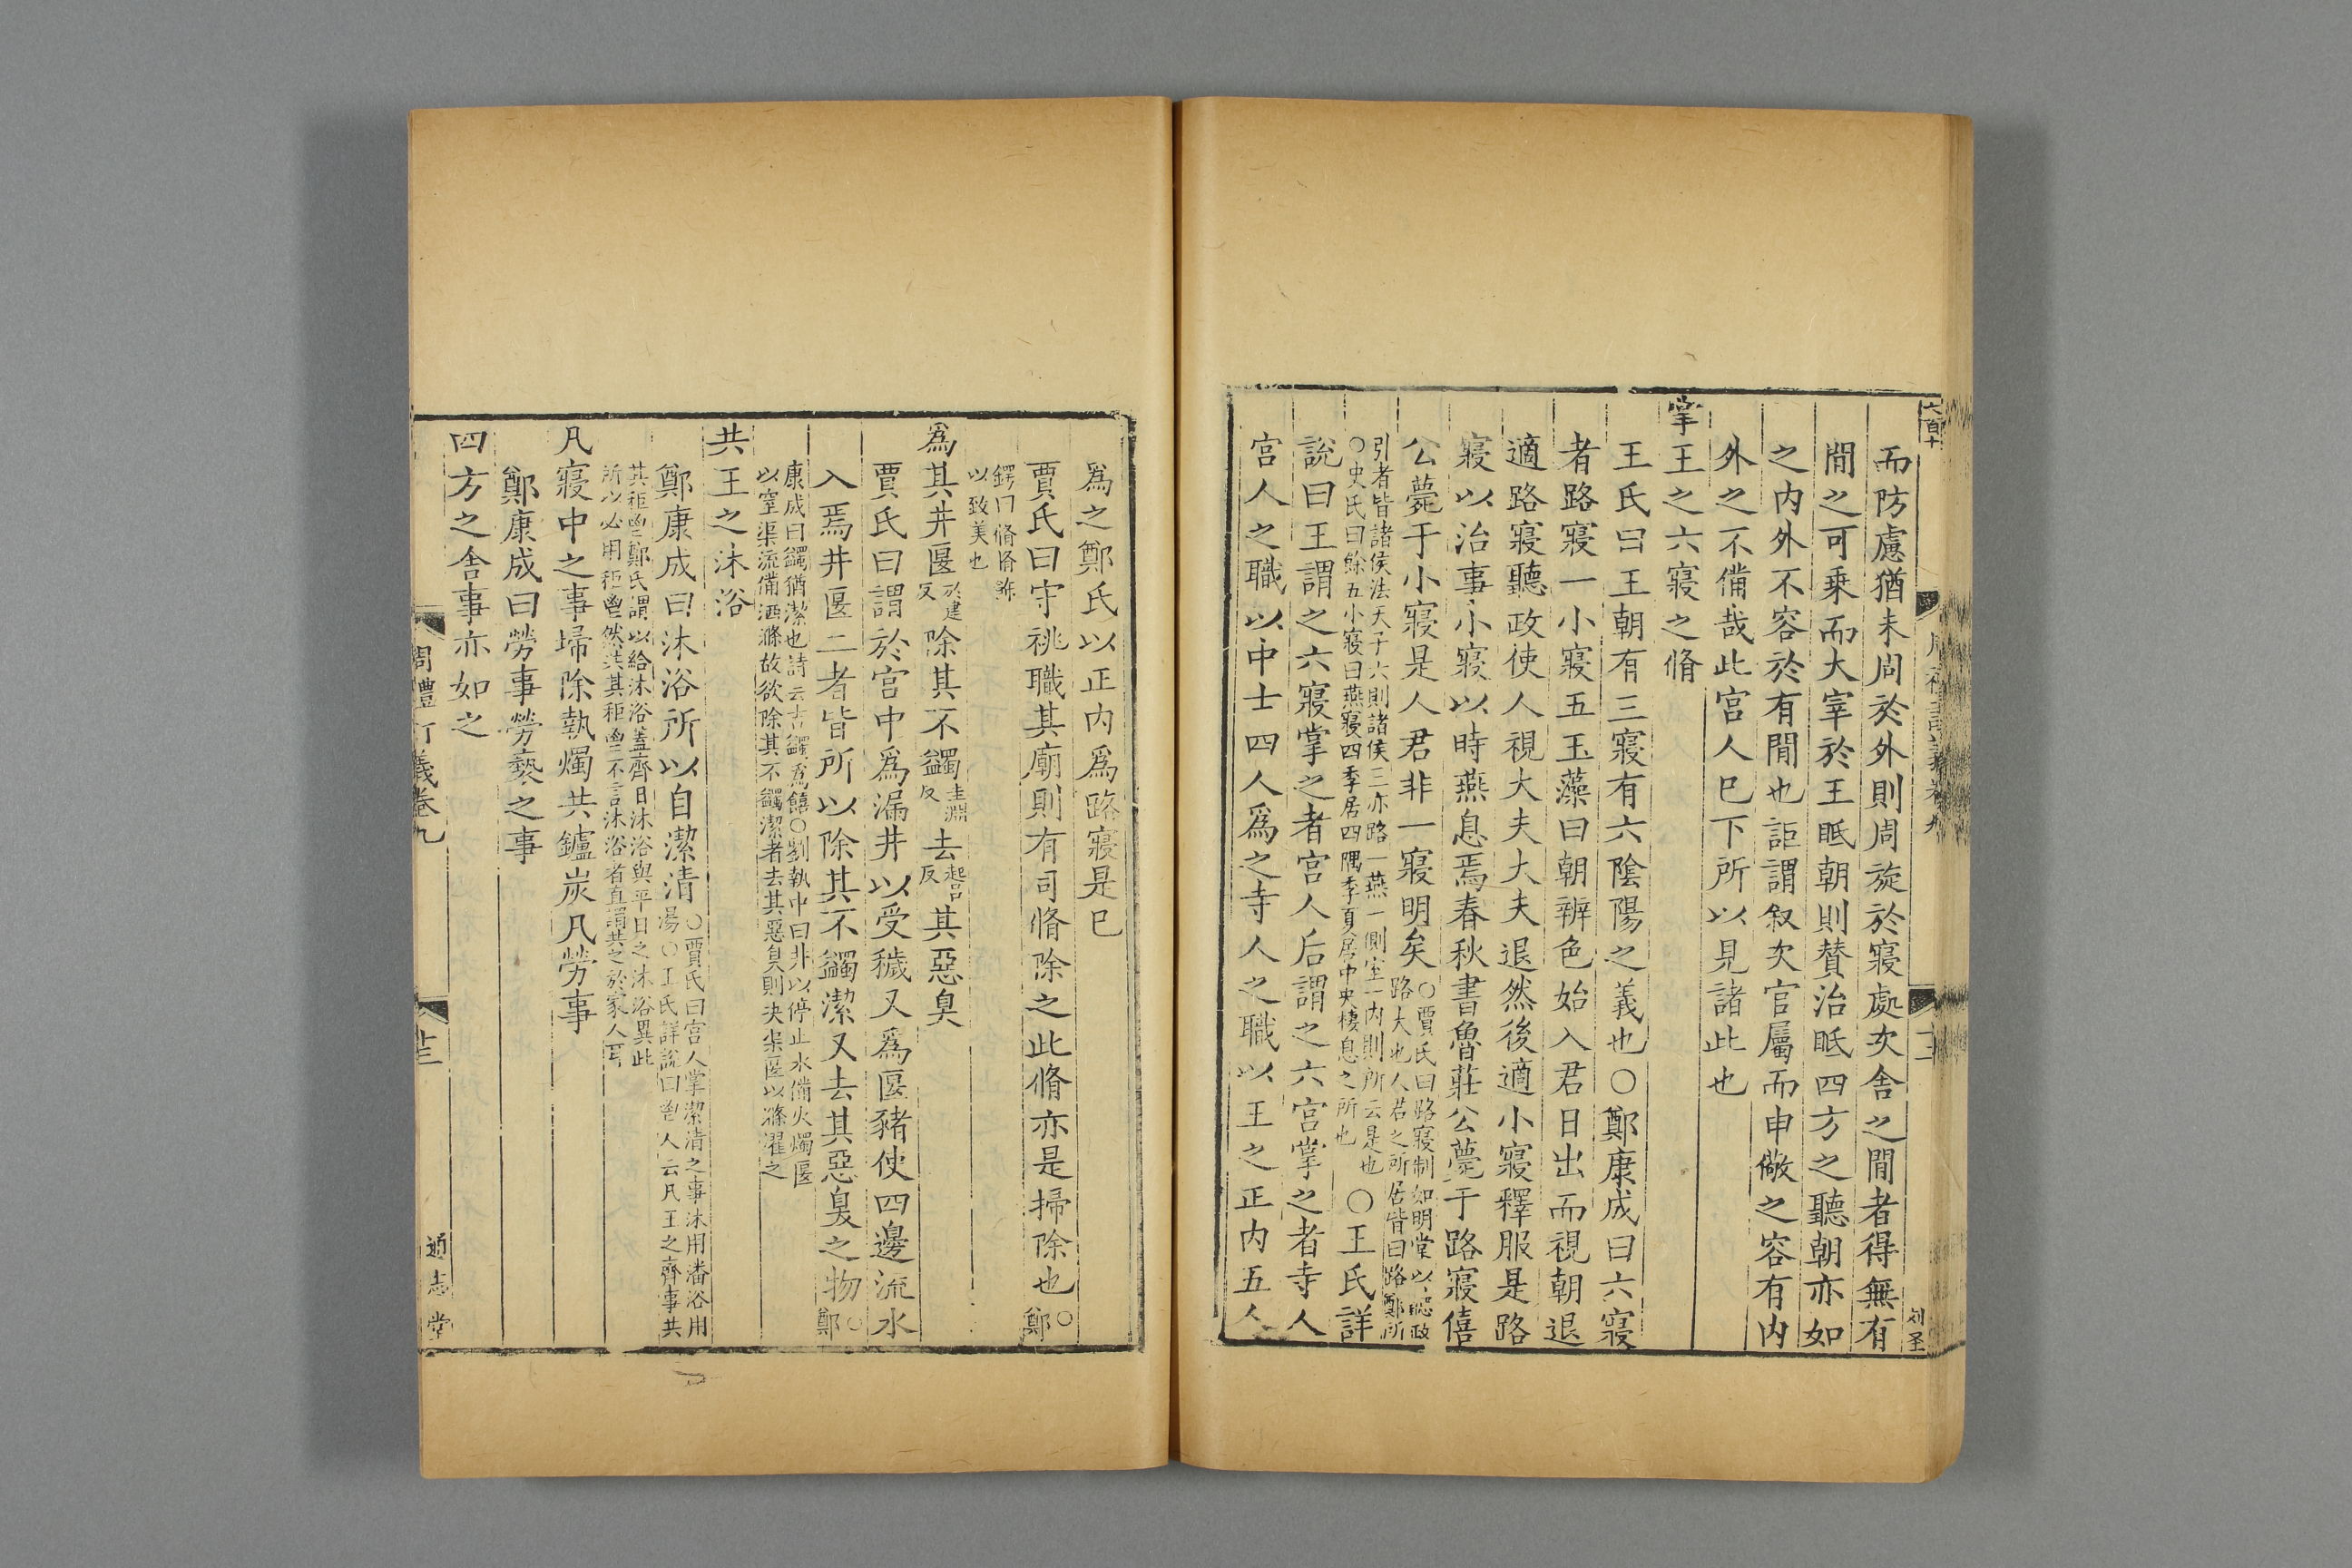 六百十
而防慮猶未周於外則周旋於寢處次舍之閒者得無有
閒之可乗而大宰於王眡朝則賛治眡四方之聽朝亦如
之内外不容於有閒也詎謂叙次官屬而申儆之容有内
外之不備哉此宫人已下所以見諸此也
掌王之六寢之脩
王氏曰王朝有三寢有六陰陽之義也○鄭康成曰六寢
者路寢一小寢五玉藻曰朝辨色始入君日出而視朝退
適路寢聽政使人視大夫大夫退然後適小寢釋服是路
寢以治事小寢以時燕息焉春秋書魯莊公薨于路寢僖
公薨于小寢是人君非一寢明矣○賈氏曰路寢制如明堂以聽政
路大也人君之所居皆曰路鄭所
引者皆諸侯法天子六則諸侯三亦路一燕一側室一内則所云是也
○史氏曰餘五小寢曰燕寢四季居四隅季夏居中央棲息之所也
○王氏詳
說曰王謂之六寢掌之者宫人后謂之六宫掌之者寺人
宫人之職以中士四人爲之寺人之職以王之正内五人
刘圣
爲之鄭氏以正内爲路寢是已
賈氏曰守祧職其廟則有司脩除之此脩亦是掃除也○鄭
鍔曰脩脩
以致美也
爲其井匽於建反除其不蠲圭淵反去起吕反其惡臭
賈氏曰謂於宫中爲漏井以受穢又爲匽豬使四邊流水
入焉井匽二者皆所以除其不蠲潔又去其惡臭之物○鄭
康成曰蠲猶潔也詩云吉蠲爲饎○劉執中曰井以停止水備火燭匽
以窒渠流備洒滌故欲除其不蠲潔者去其惡臭則決渠匽以滌濯之
共王之沐浴
鄭康成曰沐浴所以自潔清○賈氏曰宫人掌潔清之事沐用潘浴用
湯○王氏詳說曰鬯人云凡王之齊事共
其秬鬯鄭氏謂以給沐浴蓋齊日沐浴與平日之沐浴異此
所以必用秬鬯然共其秬鬯不言沐浴者直謂共之於宫人耳
凡寢中之事埽除執燭共鑪炭凡勞事
鄭康成曰勞事勞褻之事
四方之舍事亦如之
周禮訂義卷九
廿三
通志堂